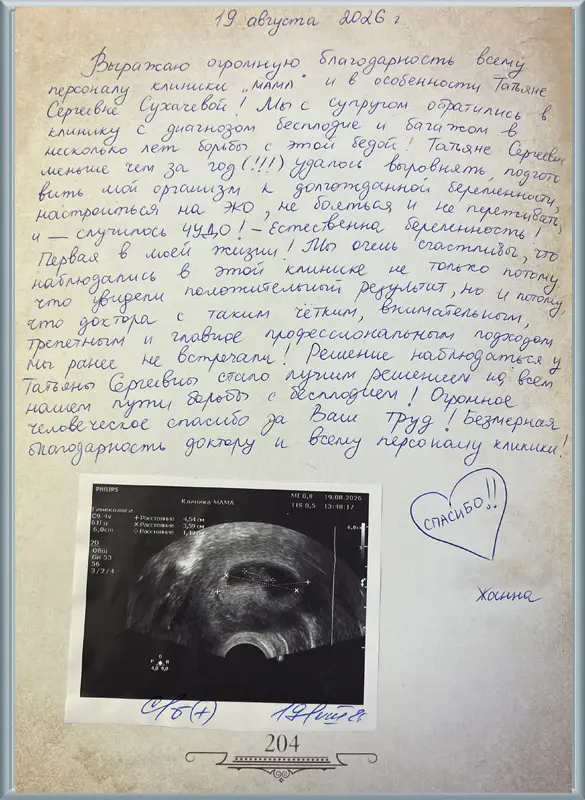 19 августа 2026 г
Выражаю огромную благодарность всему
персоналу клиники „МАМА" и в особенности Татьяне
Сергеевне Сухачевой! Мы с супругом обратились в
клинику с диагнозом бесплодие и багажом в
несколько лет борьбы с этой бедой! Татьяне Сергеевне
меньше чем за год (!!!) удалось выровнять, подгото
вить мой организм к долгожданной беременности,
настроиться на ЭКО, не бояться и не переживать,
и — случилось ЧУДО! – Естественна беременность!
Первая в моей жизни! Мы очень счастливы, что
наблюдались в этой клинике не только потому
что увидели положительный результат, но и потому,
что доктора с таким чётким, внимательным,
трепетным и главное профессиональным подходом
мы ранее не встречали! Решение наблюдаться у
Татьяны Сергеевны стало лучшим решением на всём
нашем пути борьбы с бесплодием! Огромное
человеческое спасибо за Ваш труд! Безмерная
благодарность доктору и всему персоналу клиники!
СПАСИБО!!
Жанна
PHILIPS
Клиника МАМА
MI 0,8 19.08.2026
TIS 0,5 13:48:17
Гинекологи
C9-4v
61Гц
6,0cm
2D
Общ
Gn 53
56
3/2/4
+ Расстояние 4,54 см
× Расстояние 3,59 см
Расстояние
6,0см
P R
4,0 9,0
P
с/б (+)
204